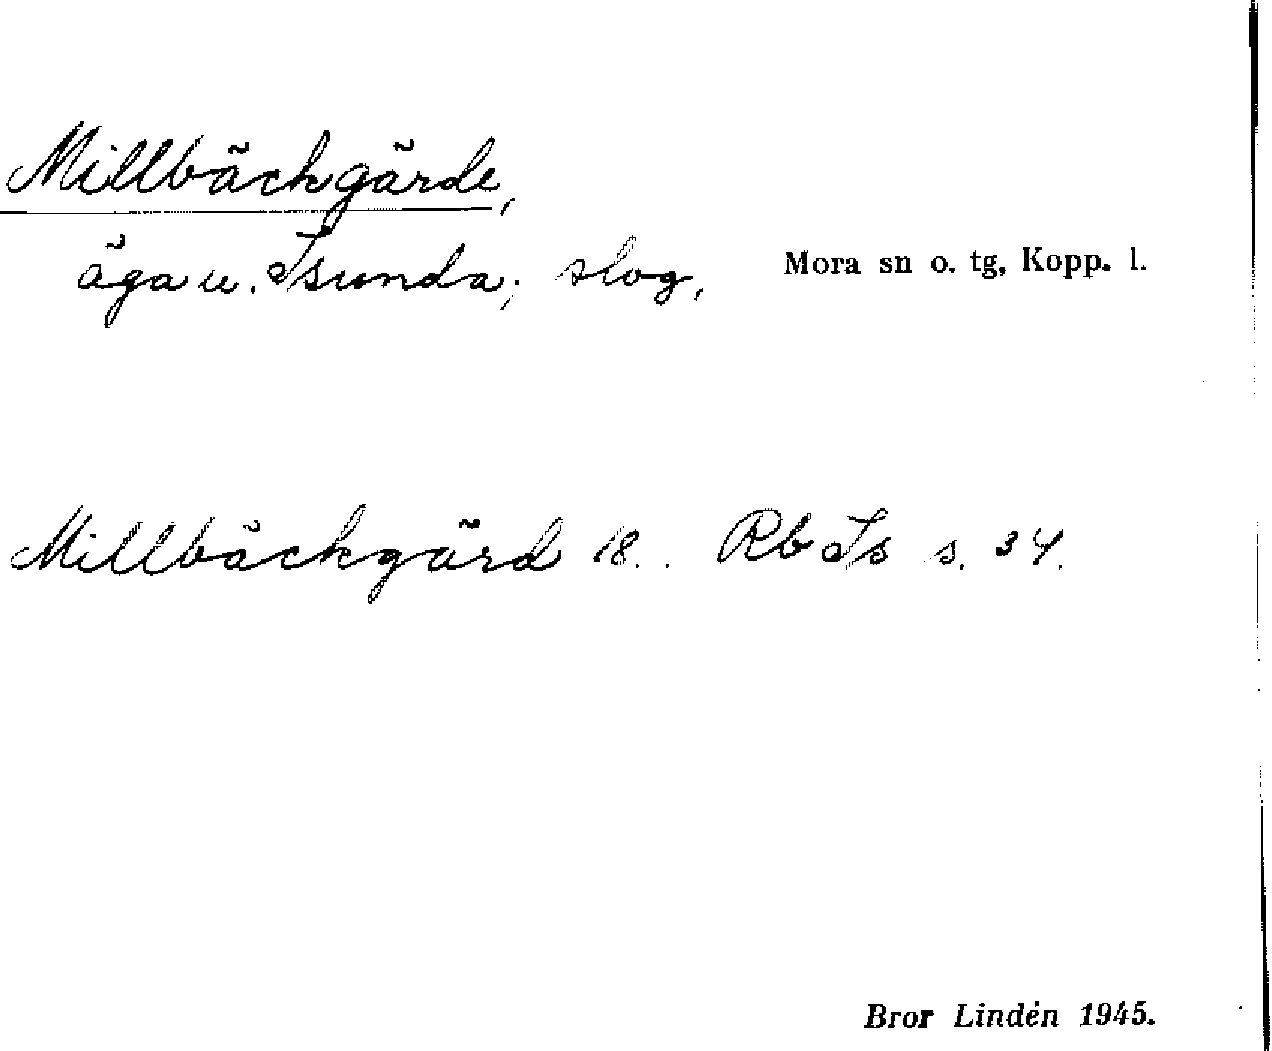 Millbäckgärde,
äga u. Isunda; slog,
Mora sn o. tg, Kopp. l.
Millbäckgärd 18.. Rb Is s. 34.
Bror Lindén 1945.